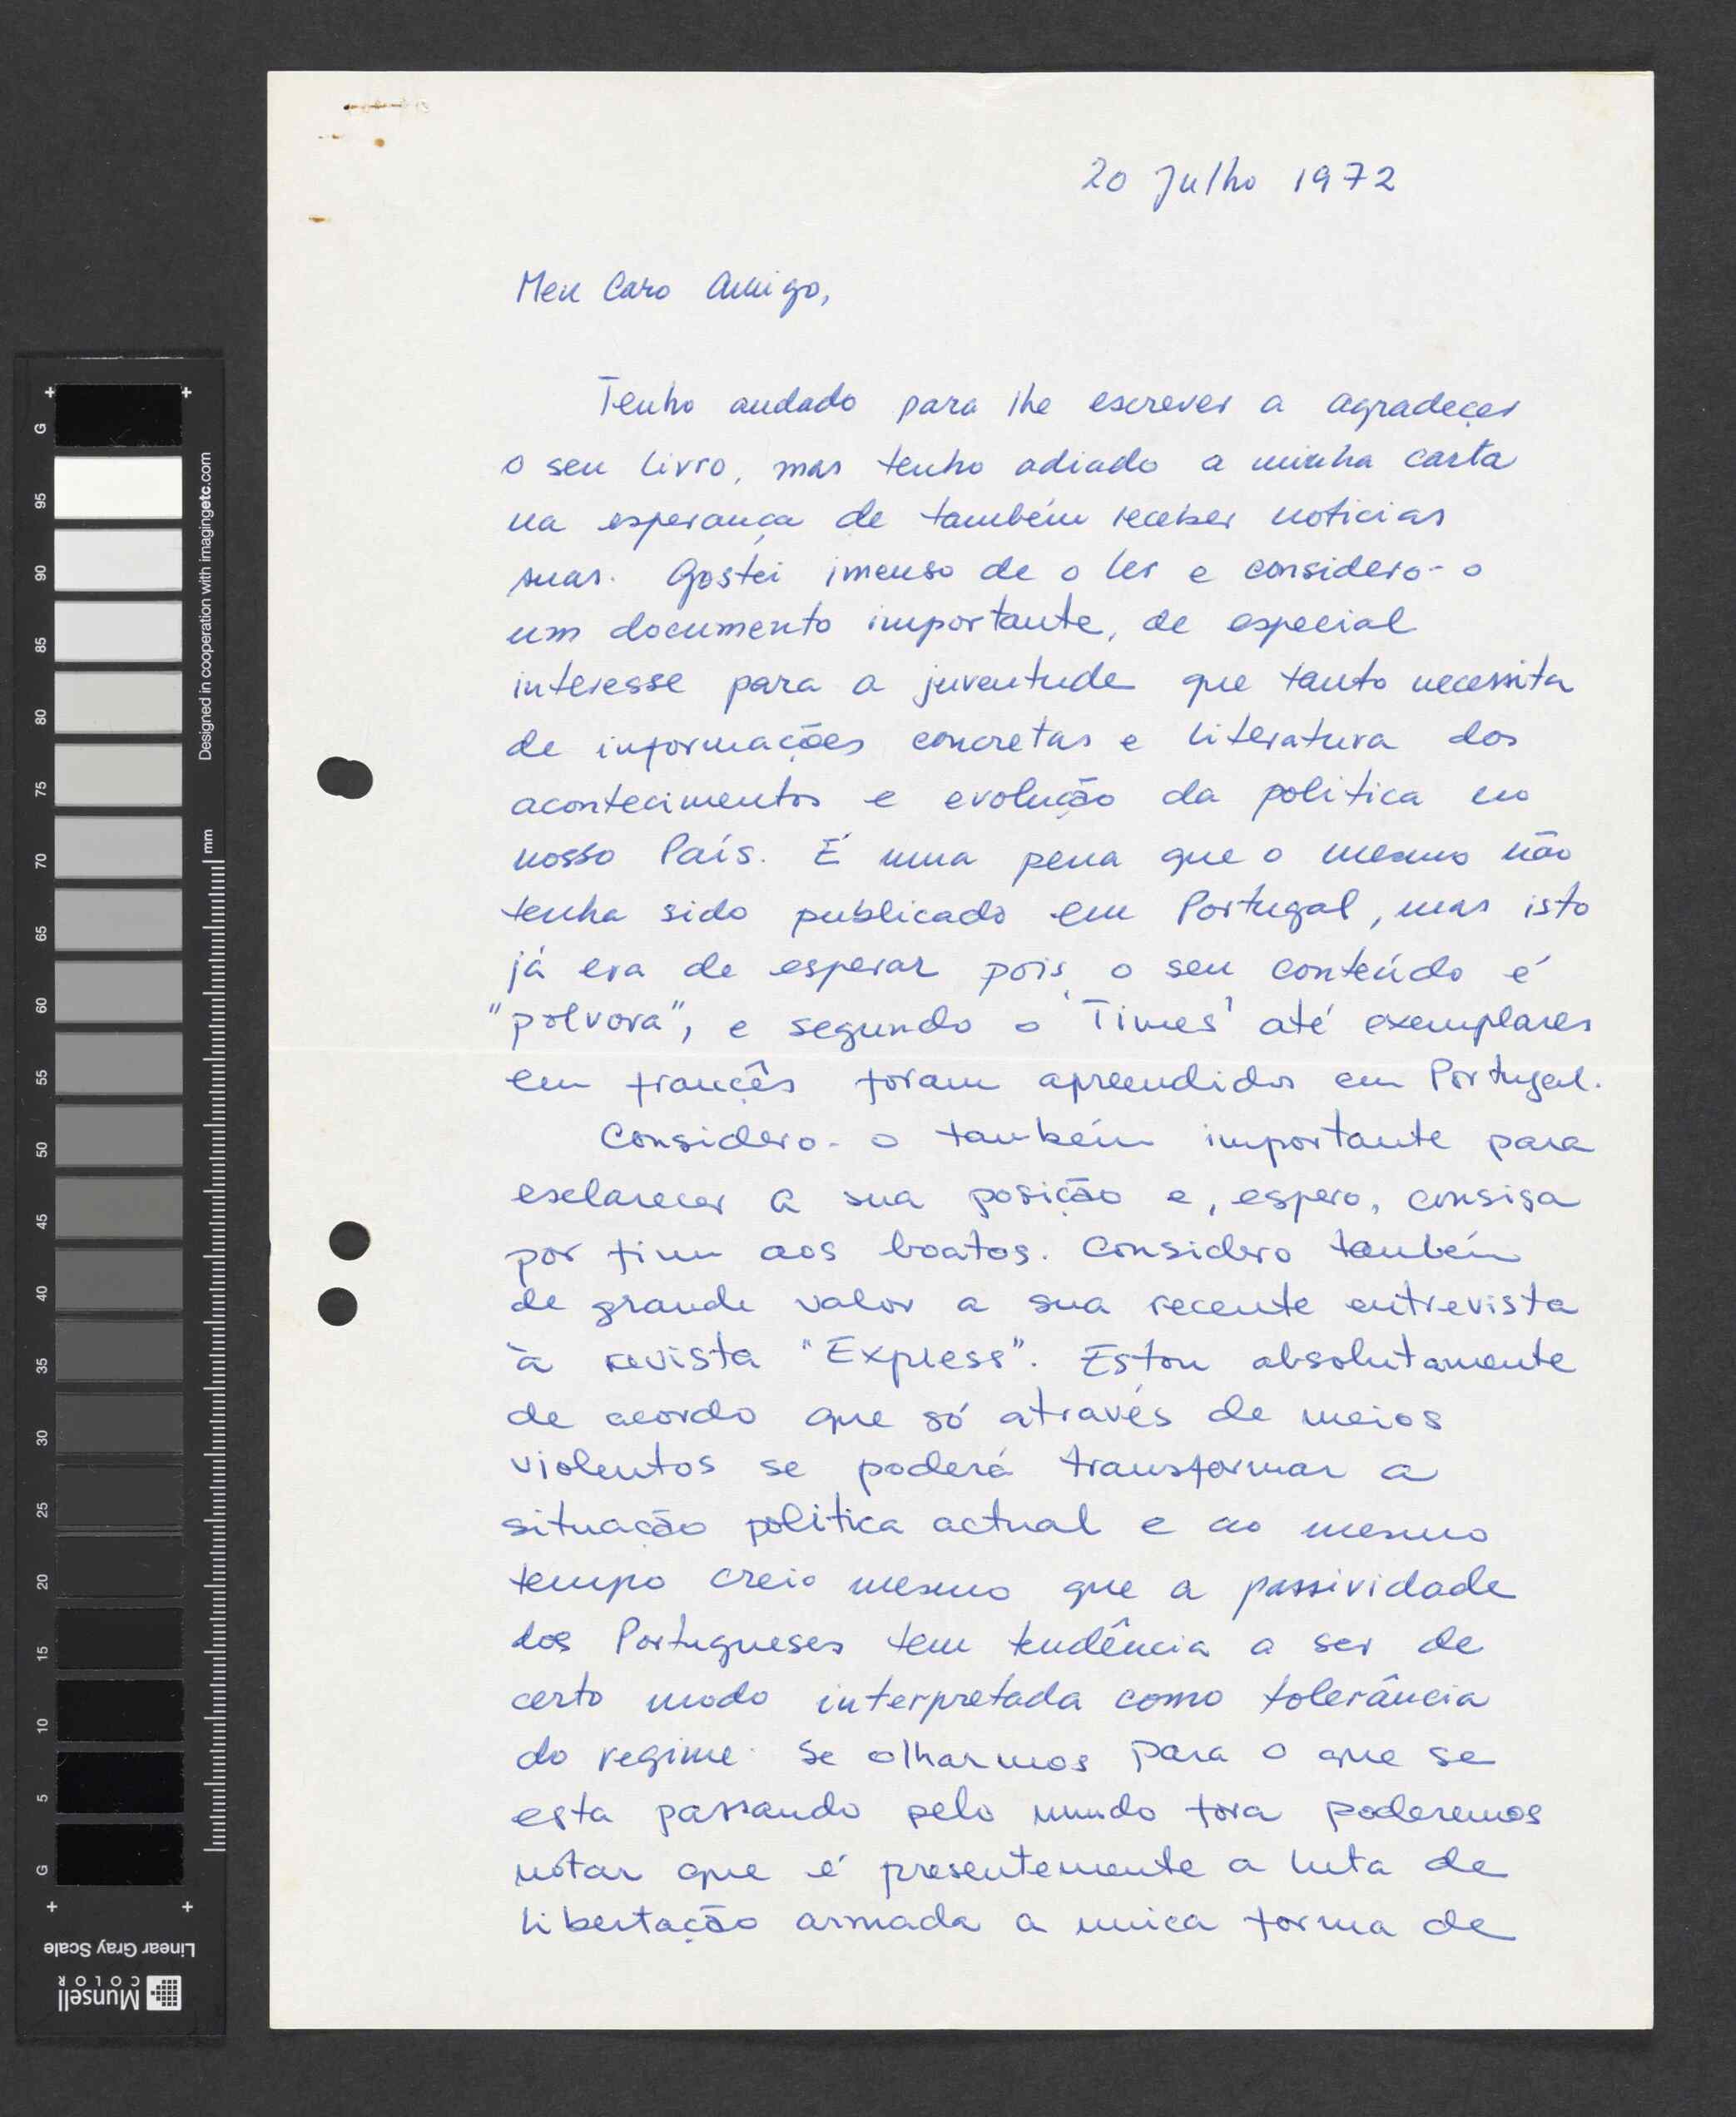 20 Julho 1972
Meu Caro Amigo,
Tenho andado para lhe escrever a agradeçer
o seu livro, mas tenho adiado a minha carta
na esperança de também receber noticias
suas. Gostei imenso de o ler e considero-o
um documento importante, de especial
interesse para a juventude que tanto necessita
de informações concretas e literatura dos
acontecimentos e evolução da politica no
nosso País. É uma pena que o mesmo não
tenha sido publicado em Portugal, mas isto
já era de esperar pois o seu conteúdo é
"polvora", e segundo o 'Times' até exemplares
em françês foram apreendidos em Portugal.
Considero-o também importante para
esclarecer a sua posição e, espero, consiga
por fim aos boatos. Considero também
de grande valor a sua recente entrevista
à revista "Express". Estou absolutamente
de acordo que só através de meios
violentos se poderá transformar a
situação politica actual e ao mesmo
tempo creio mesmo que a passividade
dos Portugueses tem tendência a ser de
certo modo interpretada como tolerância
do regime. Se olharmos para o que se
esta passando pelo mundo fora poderemos
notar que é presentemente a luta de
libertação armada a unica forma de
G
95
90
85
80
75
70
65
60
55
50
45
40
35
30
25
20
15
10
5
G
Designed in cooperation with imagingetc.com
mm
Linear Gray Scale
Munsell
COLOR